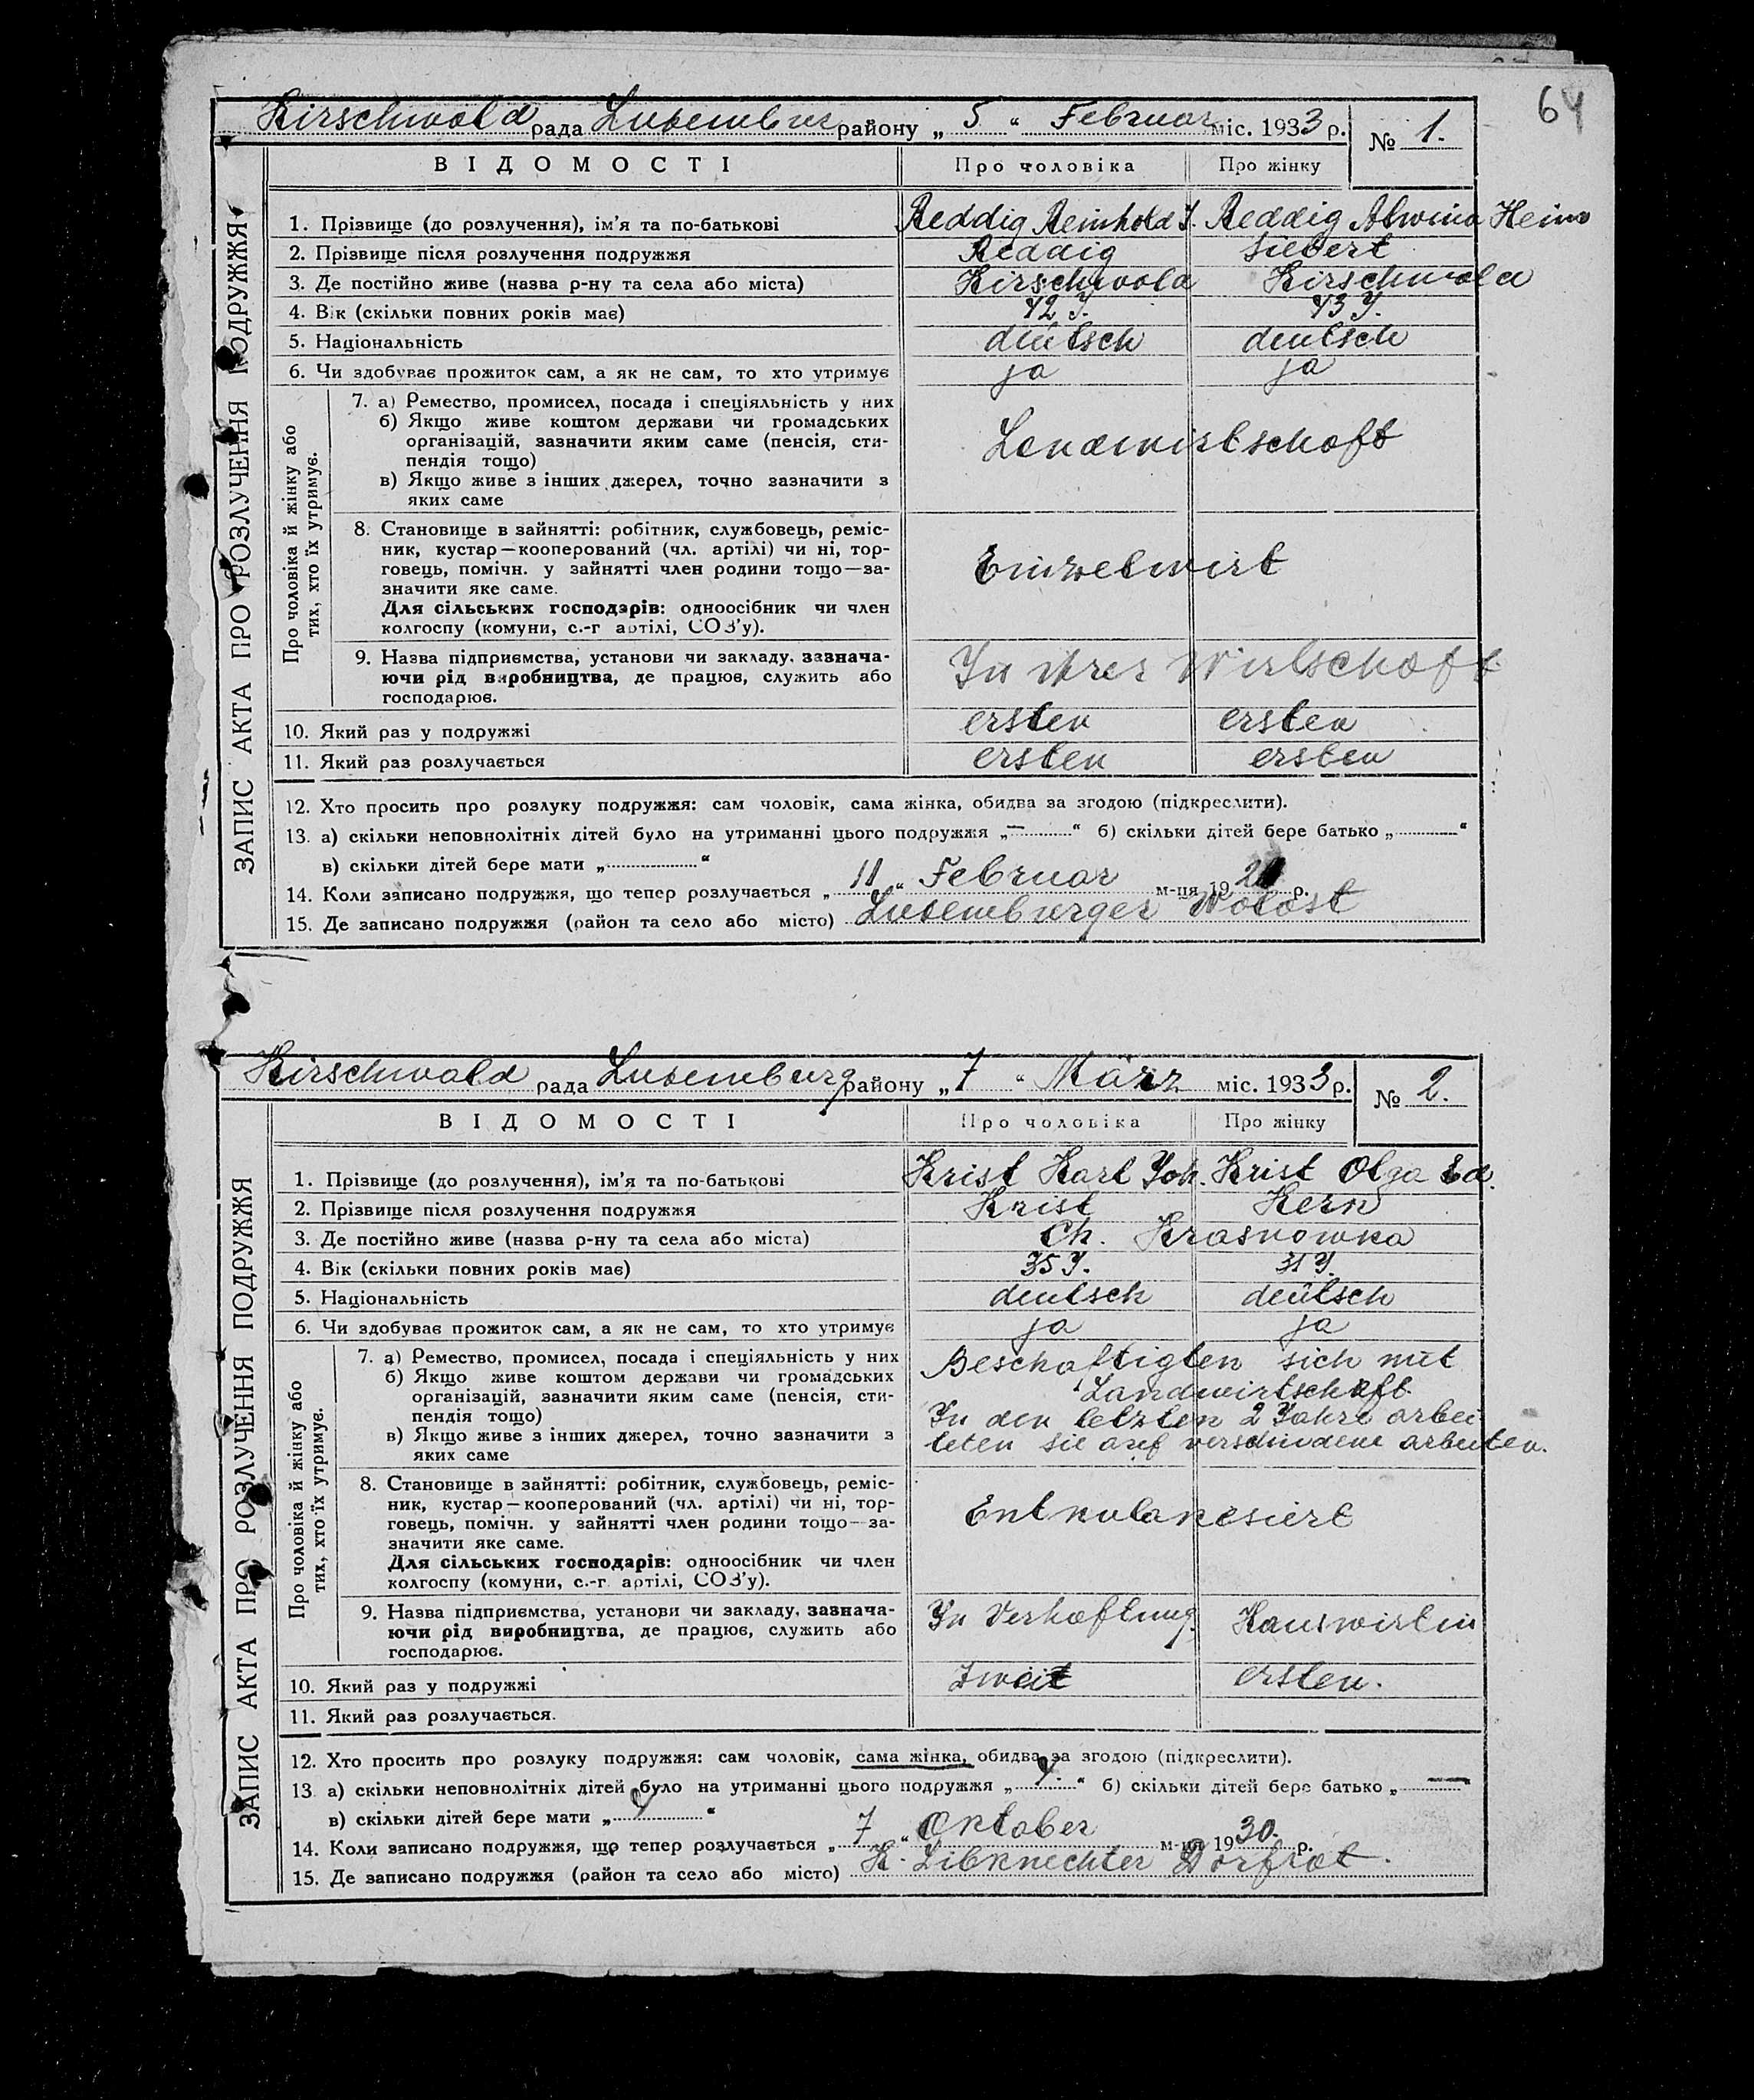 64
Kirschwald рада Luxemburg району „ 5 “ Februar міс. 1933 р. № 1.
ЗАПИС АКТА ПРО РОЗЛУЧЕННЯ ПОДРУЖЖЯ
ВІДОМОСТІ Про чоловіка Про жінку
1. Прізвище (до розлучення), ім'я та по-батькові Reddig Reinhold J. Reddig Alwina Hein
2. Прізвище після розлучення подружжя Reddig Siebert
3. Де постійно живе (назва р-ну та села або міста) Kirschwald Kirschwald
4. Вік (скільки повних років має) 42 J. 43 J.
5. Національність deutsch deutsch
6. Чи здобуває прожиток сам, а як не сам, то хто утримує ja ja
Про чоловіка й жінку або
тих, хто їх утримує.
7. а) Ремество, промисел, посада і спеціяльність у них
б) Якщо живе коштом держави чи громадських
організацій, зазначити яким саме (пенсія, сти-
пендія тощо)
в) Якщо живе з інших джерел, точно зазначити з
яких саме
Landwirtschaft
8. Становище в зайнятті: робітник, службовець, реміс-
ник, кустар—кооперований (чл. артілі) чи ні, тор-
говець, помічн. у зайнятті член родини тощо—за-
значити яке саме.
Для сільських господарів: одноосібник чи член
колгоспу (комуни, с.-г артілі, СОЗ'у).
Einzelwirt
9. Назва підприємства, установи чи закладу, зазнача-
ючи рід виробництва, де працює, служить або
господарює.
In ihrer Wirtschaft
10. Який раз у подружжі ersten ersten
11. Який раз розлучається ersten ersten
12. Хто просить про розлуку подружжя: сам чоловік, сама жінка, обидва за згодою (підкреслити).
13. а) скільки неповнолітніх дітей було на утриманні цього подружжя „ — “ б) скільки дітей бере батько „ “
в) скільки дітей бере мати „ “
14. Коли записано подружжя, що тепер розлучається „ 11 “ Februar м-ця 19 р.
15. Де записано подружжя (район та село або місто) Luxemburger Wolost
Kirschwald рада Luxemburg району „ 7 “ März міс. 1933 р. № 2.
ЗАПИС АКТА ПРО РОЗЛУЧЕННЯ ПОДРУЖЖЯ
ВІДОМОСТІ Про чоловіка Про жінку
1. Прізвище (до розлучення), ім'я та по-батькові Krist Karl Joh. Krist Olga Ed.
2. Прізвище після розлучення подружжя Krist Kern
3. Де постійно живе (назва р-ну та села або міста) Ch. Krasnowka
4. Вік (скільки повних років має) 35 J. 31 J.
5. Національність deutsch deutsch
6. Чи здобуває прожиток сам, а як не сам, то хто утримує ja ja
Про чоловіка й жінку або
тих, хто їх утримує.
7. а) Ремество, промисел, посада і спеціяльність у них
б) Якщо живе коштом держави чи громадських
організацій, зазначити яким саме (пенсія, сти-
пендія тощо)
в) Якщо живе з інших джерел, точно зазначити з
яких саме
Beschaftigten sich mit
Landwirtschaft.
In den letzten 2 Jahre arbei
teten sie auf verschiedene arbeiten.
8. Становище в зайнятті: робітник, службовець, реміс-
ник, кустар—кооперований (чл. артілі) чи ні, тор-
говець, помічн. у зайнятті член родини тощо—за-
значити яке саме.
Для сільських господарів: одноосібник чи член
колгоспу (комуни, с.-г. артілі, СОЗ'у).
Entkulakesiert
9. Назва підприємства, установи чи закладу, зазнача-
ючи рід виробництва, де працює, служить або
господарює.
In Verhaftung. Hauswirtin
10. Який раз у подружжі zweit ersten.
11. Який раз розлучається.
12. Хто просить про розлуку подружжя: сам чоловік, сама жінка, обидва за згодою (підкреслити).
13. а) скільки неповнолітніх дітей було на утриманні цього подружжя „ 4. “ б) скільки дітей бере батько „ — “
в) скільки дітей бере мати „ 4 “
14. Коли записано подружжя, що тепер розлучається „ 7 “ Oktober м-ця 1930. р.
15. Де записано подружжя (район та село або місто) K. Libknechter Dorfrat.